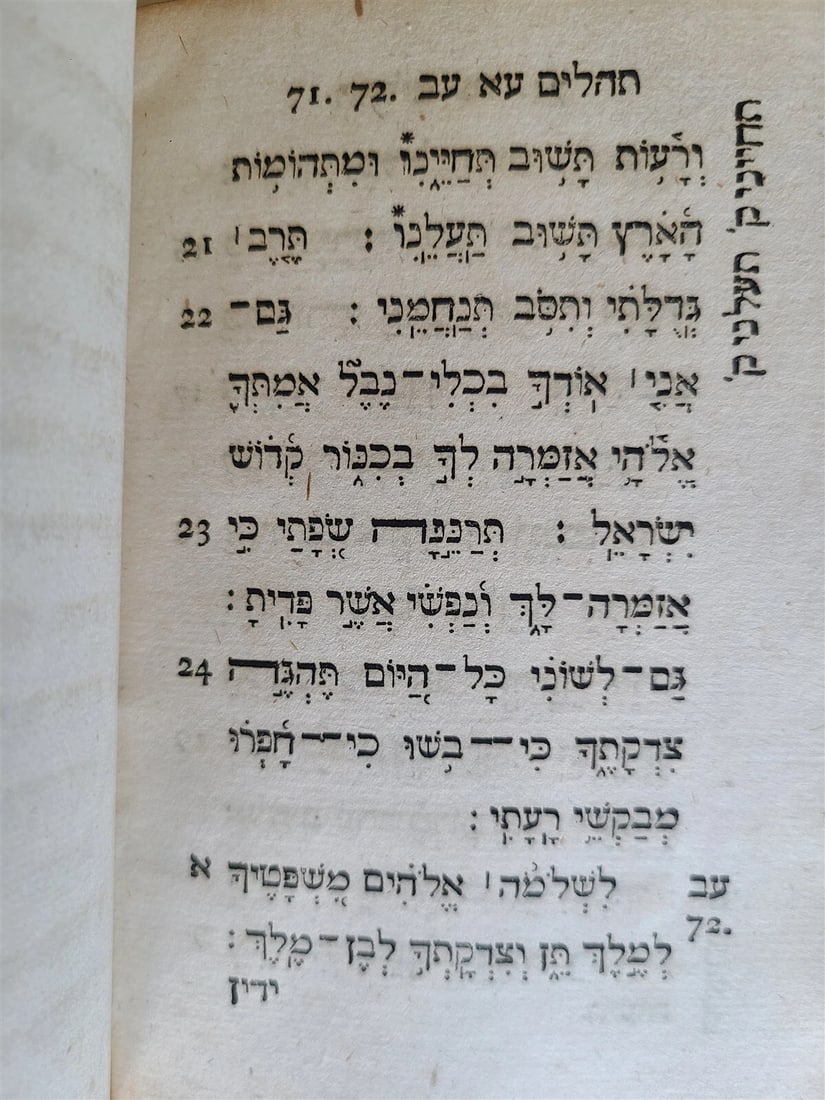 תהלים עא עב 71. 72.
וְרָ֫ע֥וֹת תָּשׁ֥וּב תְּחַיֵּ֑ינִוּ* וּֽמִתְּהוֹמ֥וֹת
הָ֝אָ֗רֶץ תָּשׁ֥וּב תַּֽעֲלֵֽנִוּ* : תֶּ֤רֶב ׀ 21
גְּֽדֻלָּתִ֗י וְתִסֹּ֥ב תְּֽנַחֲמֵֽנִי : גַּם־ 22
אֲנִ֤י ׀ אוֹדְךָ֣ בִכְלִי־נֶבֶל֮ אֲמִתְּךָ֪
אֱלֹ֫הָ֥י אֲזַמְּרָ֣ה לְךָ֣ בְכִנּ֑וֹר קְ֝ד֗וֹשׁ
יִשְׂרָאֵֽל : תְּרַנֵּ֣נָּה שְׂ֭פָתַי כִּ֣י 23
אֲזַמְּרָה־לָּ֑ךְ וְ֝נַפְשִׁ֗י אֲשֶׁ֣ר פָּדִֽיתָ :
גַּם־לְשׁוֹנִ֗י כָּל־הַ֭יּוֹם תֶּהְגֶּ֣ה 24
צִדְקָתֶ֑ךָ כִּי־בֹ֥שׁוּ כִֽי־חָ֝פְר֗וּ
מְבַקְשֵׁ֥י רָעָתִֽי :
עב לִשְׁלֹמֹ֨ה ׀ אֱֽלֹהִ֗ים מִ֭שְׁפָּטֶיךָ א
72. לְמֶ֣לֶךְ תֵּ֑ן וְצִדְקָתְךָ֥ לְבֶן־מֶֽלֶךְ :
ידין
תחייני ק' תעלני ק'